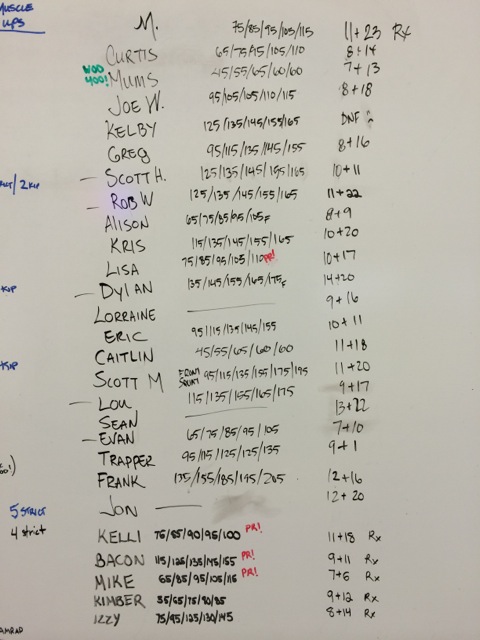 MUSCLE UPS
M. 75/85/95/105/115 11+23 Rx
CURTIS 65/75/95/105/110 8+14
WOO HOO! MUMS 45/55/65/60/60 7+13
JOE W. 95/105/105/110/115 8+18
KELBY 125/135/145/155/165 DNF
GREG 95/115/135/145/155 8+16
— SCOTT H. 125/135/145/155/165 10+11
— ROB W 125/135/145/155/165 11+22
ALISON 65/75/85/95/105F 8+9
KRIS 115/135/145/155/165 10+20
LISA 75/85/95/105/110 PR! 10+17
— DYLAN 135/145/155/165/175F 14+20
LORRAINE — 9+16
ERIC 95/115/135/145/155 10+11
CAITLIN 45/55/65/60/60 11+18
SCOTT M FRONT SQUAT 95/115/135/155/175/195 11+20
— LOU 115/135/155/165/175 9+17
SEAN — 13+22
— EVAN 65/75/85/95/105 7+10
TRAPPER 95/115/125/125/135 9+1
FRANK 135/155/185/195/205 12+16
JON — 12+20
5 STRICT
4 strict
KELLI 75/85/90/95/100 PR! 11+18 Rx
BACON 115/125/135/145/155 PR! 9+11 Rx
MIKE 65/85/95/105/115 PR! 7+6 Rx
KIMBER 35/65/75/80/85 9+12 Rx
IZZY 75/95/125/130/145 8+14 Rx
AMRAP